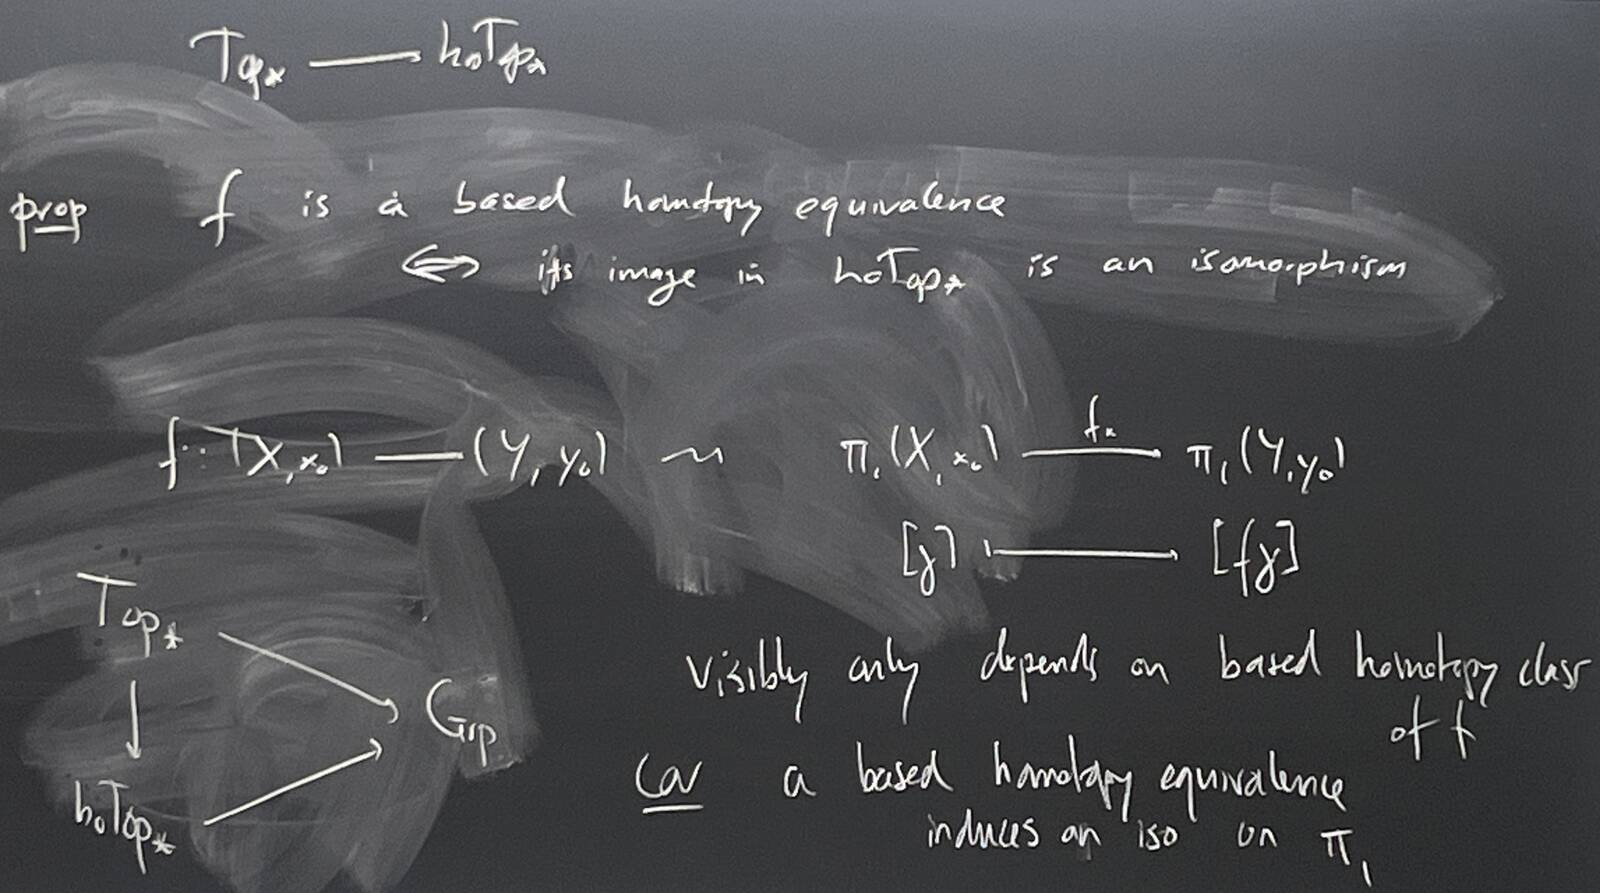 Top* —— hoTop*
prop f is a based homotopy equivalence
⟺ its image in hoTop* is an isomorphism
f : (X, x₀) —— (Y, y₀) ⁓ π₁(X, x₀) —f*— π₁(Y, y₀)
[γ] ⟼ [fγ]
Top*
visibly only depends on based homotopy class
of f
Grp
Cor a based homotopy equivalence
hoTop*
induces an iso on π₁